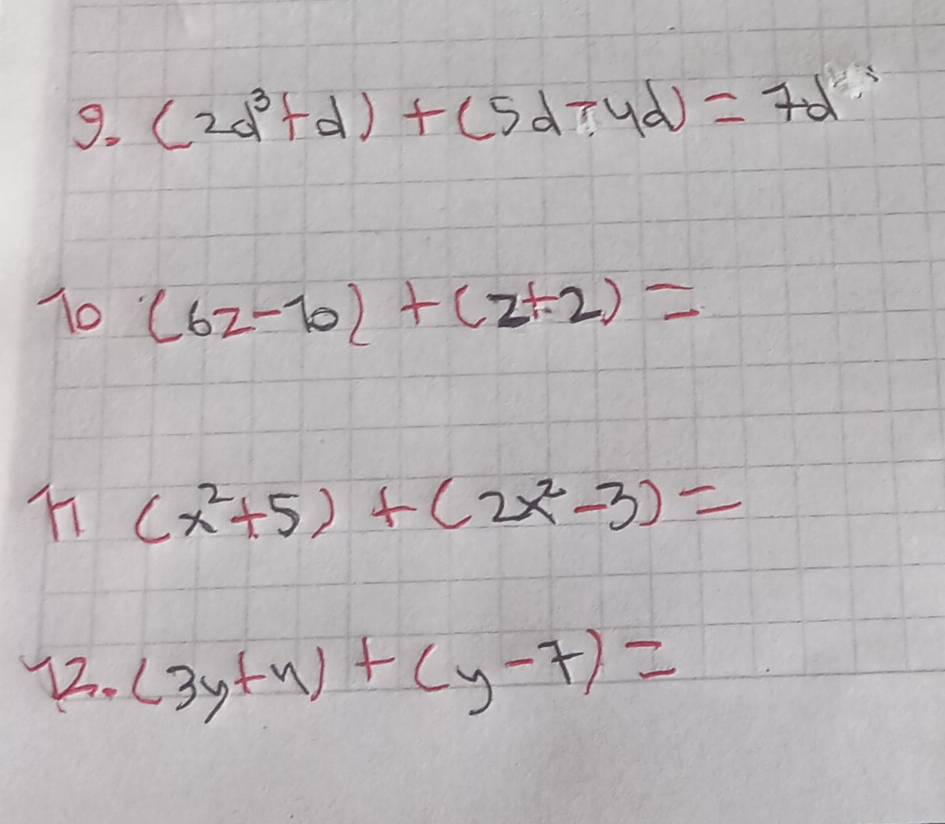 9. (2d³+d) + (5d-4d) = 7d
10 (6z-10) + (z+2) =
11 (x²+5) + (2x²-3) =
12. (3y+4) + (y-7) =